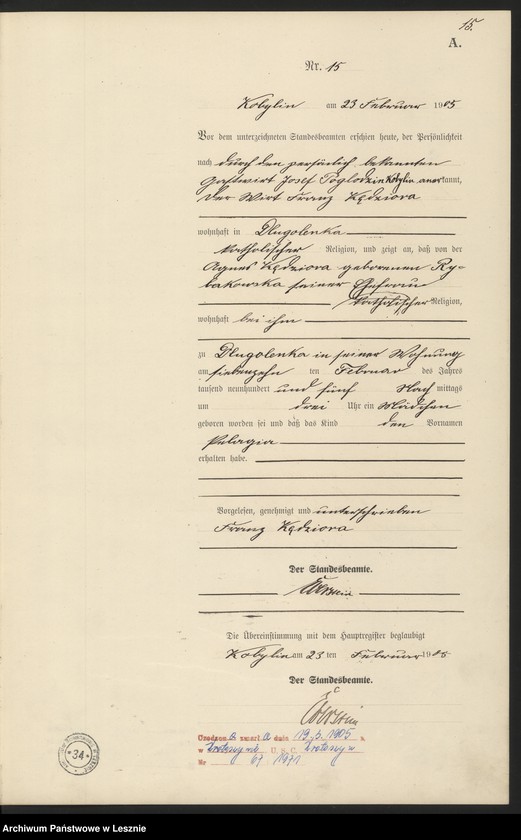 15.
A.
Nr. 15
Kobylin am 23 Februar 1905
Vor dem unterzeichneten Standesbeamten erschien heute, der Persönlichkeit
nach durch den persönlich bekannten
Gastwirt Josef in Kobylin anerkannt,
der Wirt Franz Kędziora
wohnhaft in Dlugolenka
katholischer Religion, und zeigt an, daß von der
Agnes Kędziora geborenen Ry-
bakowska seiner Ehefrau
katholischer Religion,
wohnhaft bei ihm
zu Dlugolenka in seiner Wohnung
am siebenzehn ten Februar des Jahres
tausend neunhundert und fünf Nach mittags
um drei Uhr ein Mädchen
geboren worden sei und daß das Kind den Vornamen
Pelagia
erhalten habe.
Vorgelesen, genehmigt und unterschrieben
Franz Kędziora
Der Standesbeamte.
Die Übereinstimmung mit dem Hauptregister beglaubigt
Kobylin am 23 ten Februar 1905
Der Standesbeamte.
zmarła dnia
w U. S. C.
Nr 67 1971
34
Archiwum Państwowe w Lesznie